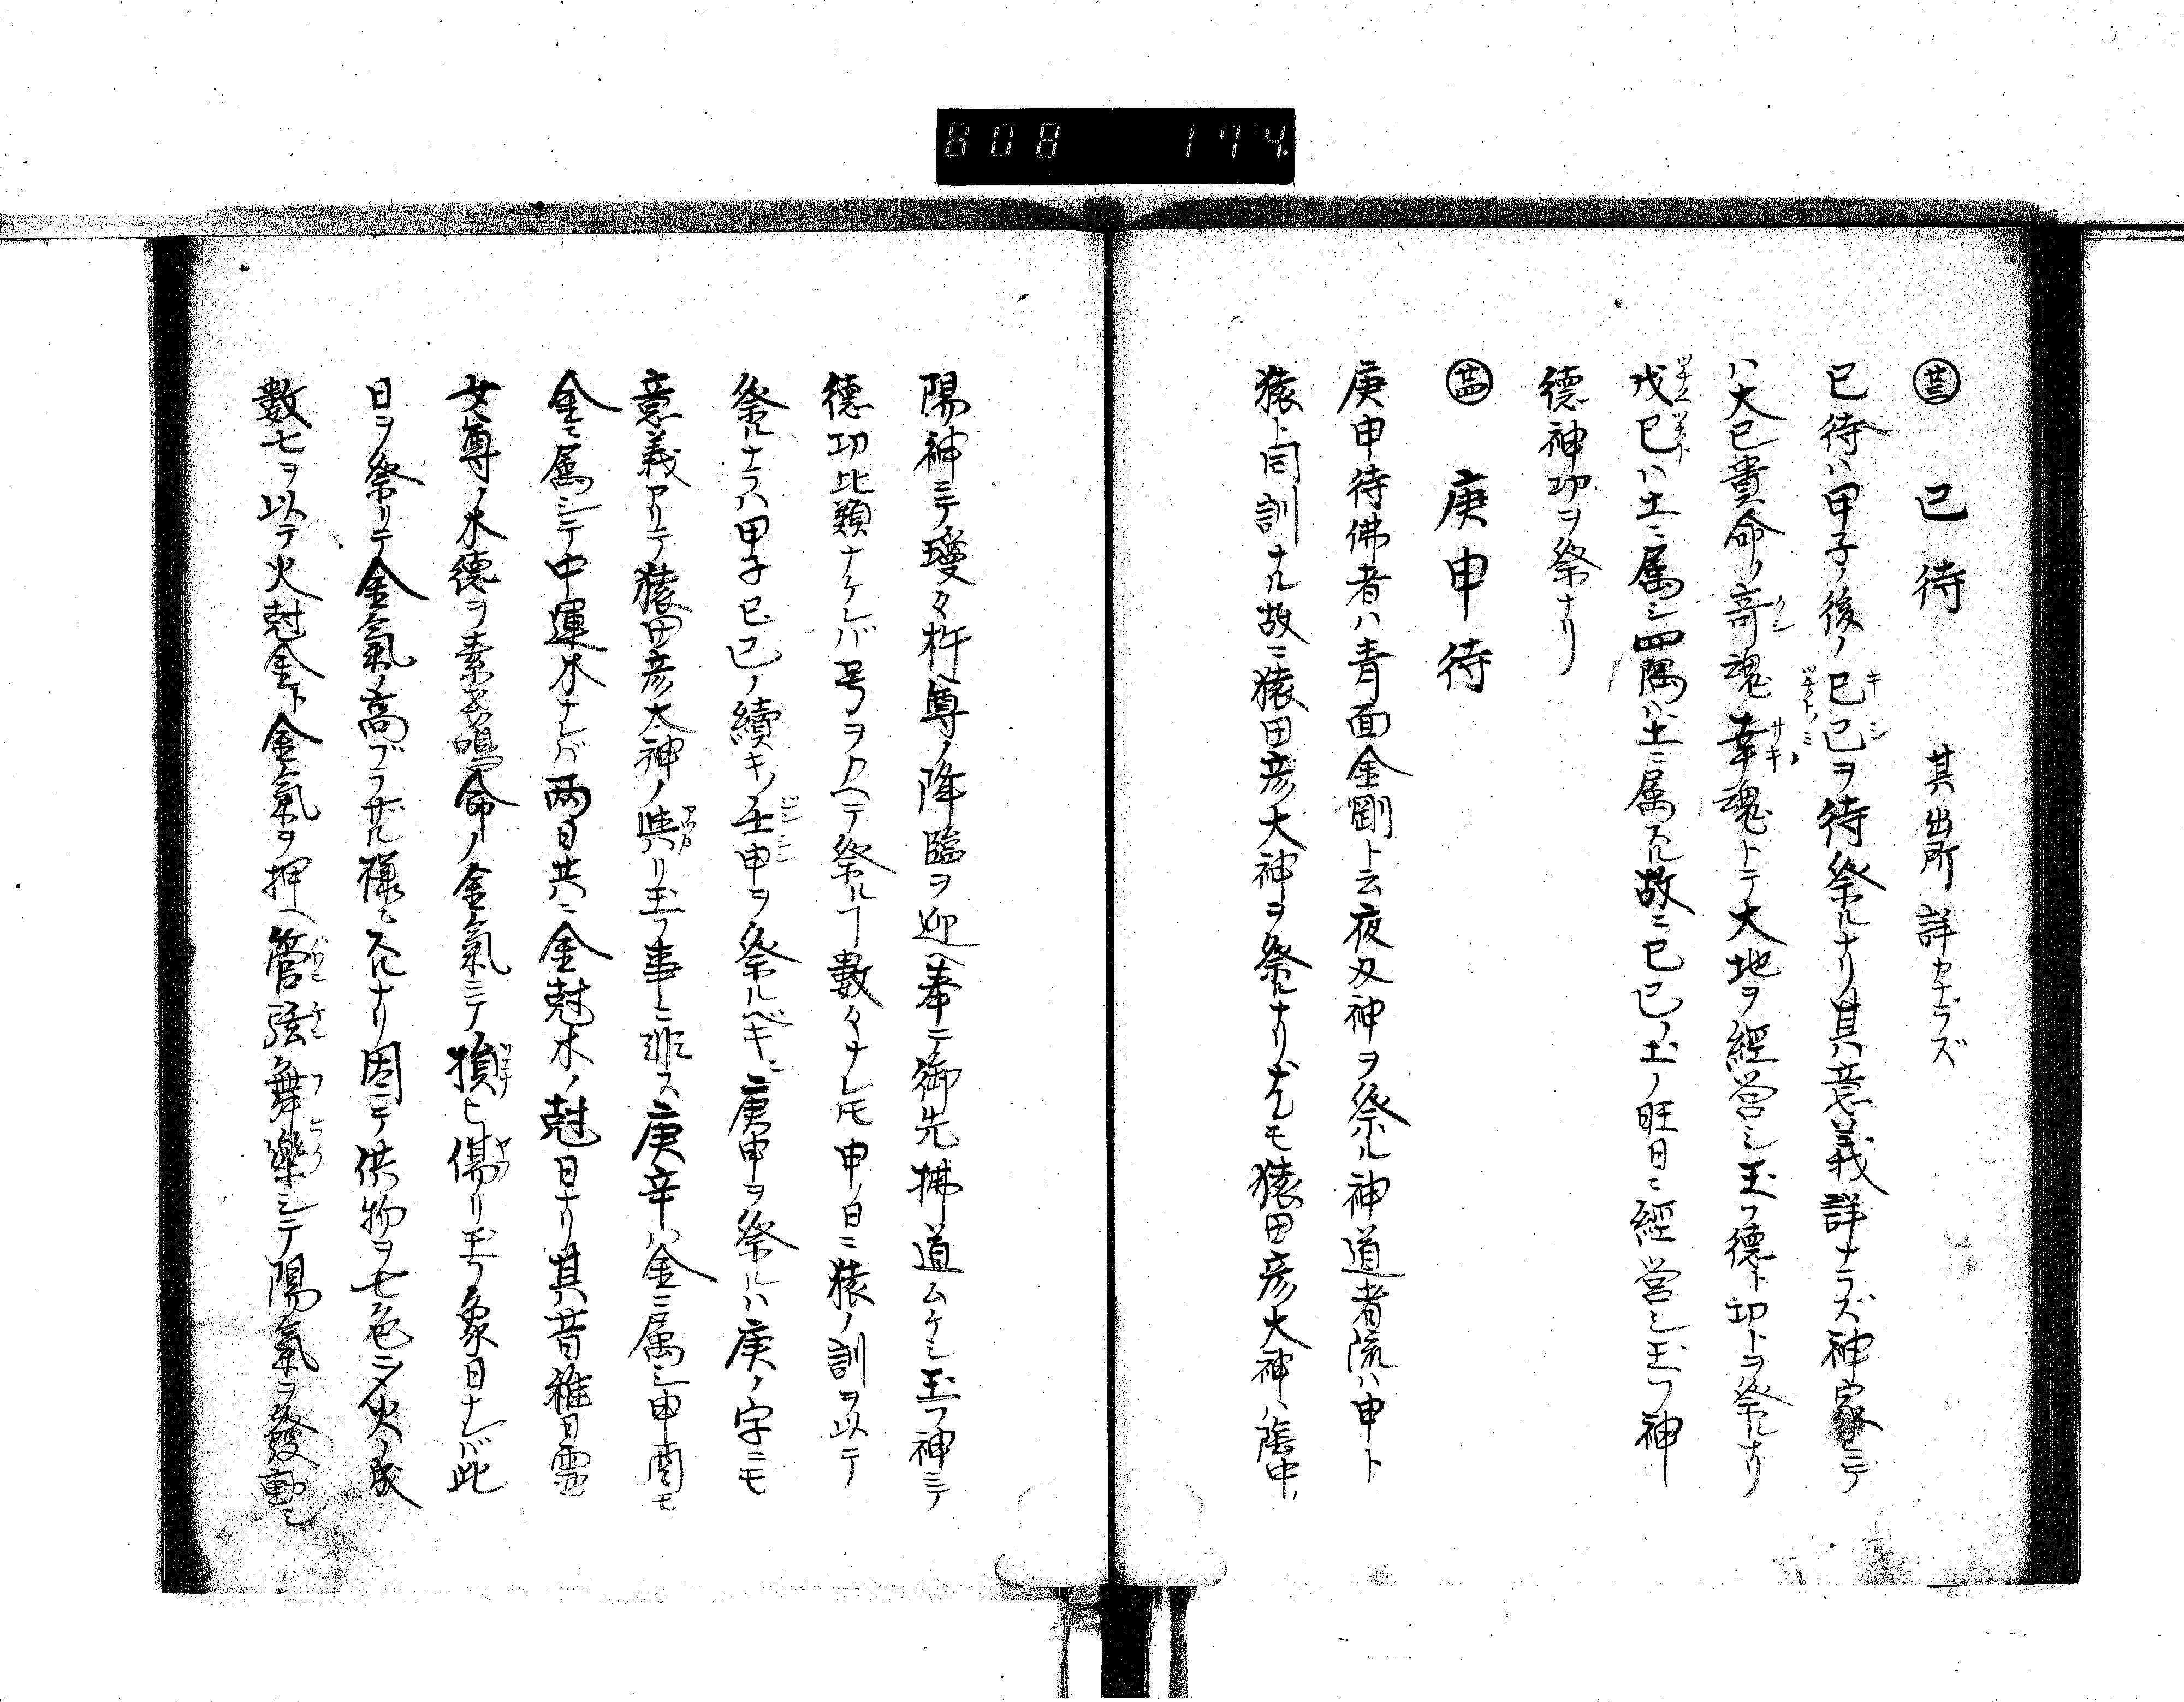 808 174
廿三 巳待 其出所詳カナラズ
巳待ハ甲子ノ後ノ己巳ヲ待祭ルナリ其意義詳ナラズ神家ニテ
ハ大己貴命ノ奇魂幸魂トテ大地ヲ經営シ玉フ德ト功トヲ祭ルナリ
戊己ハ土ニ属シ四隅ハ土ニ属スル故ニ己巳ノ土ノ旺日ニ經営シ玉フ神
德神功ヲ祭ナリ
廿四 庚申待
庚申待佛者ハ青面金剛ト云夜叉神ヲ祭ル神道者流ハ申ト
猿ト同訓ナル故ニ猿田彦大神ヲ祭ルナリ尤モ猿田彦大神ハ陰中ノ
陽神ニテ瓊々杵尊ノ降臨ヲ迎ヘ奉ニ御先拂道ムケシ玉フ神ニテ
德功比類ナケレバ号ヲカヘテ祭ルヿ數々ナレ𪜈申ノ日ニ猿ノ訓ヲ以テ
祭ルナラハ甲子己巳ノ續キノ壬申ヲ祭ルベキニ庚申ヲ祭ルハ庚ノ字ニモ
意義アリテ猿田彦大神ノ與リ玉フ事ニ非ス庚辛ハ金ニ属シ申酉モ
金ニ属シテ中運木ナレバ两日共ニ金尅木ノ尅日ナリ其昔稚日霊
女尊ノ木德ヲ素戔嗚命ノ金氣ニテ損ヒ傷リ玉フ象日ナレバ此
日ヲ祭リテ金氣ノ高ブラザル様ニスルナリ因ニテ供物ヲ七色ニシテ火ノ成
數七ヲ以テ火尅金ト金氣ヲ押ヘ管弦舞樂シテ陽氣ヲ發動シ